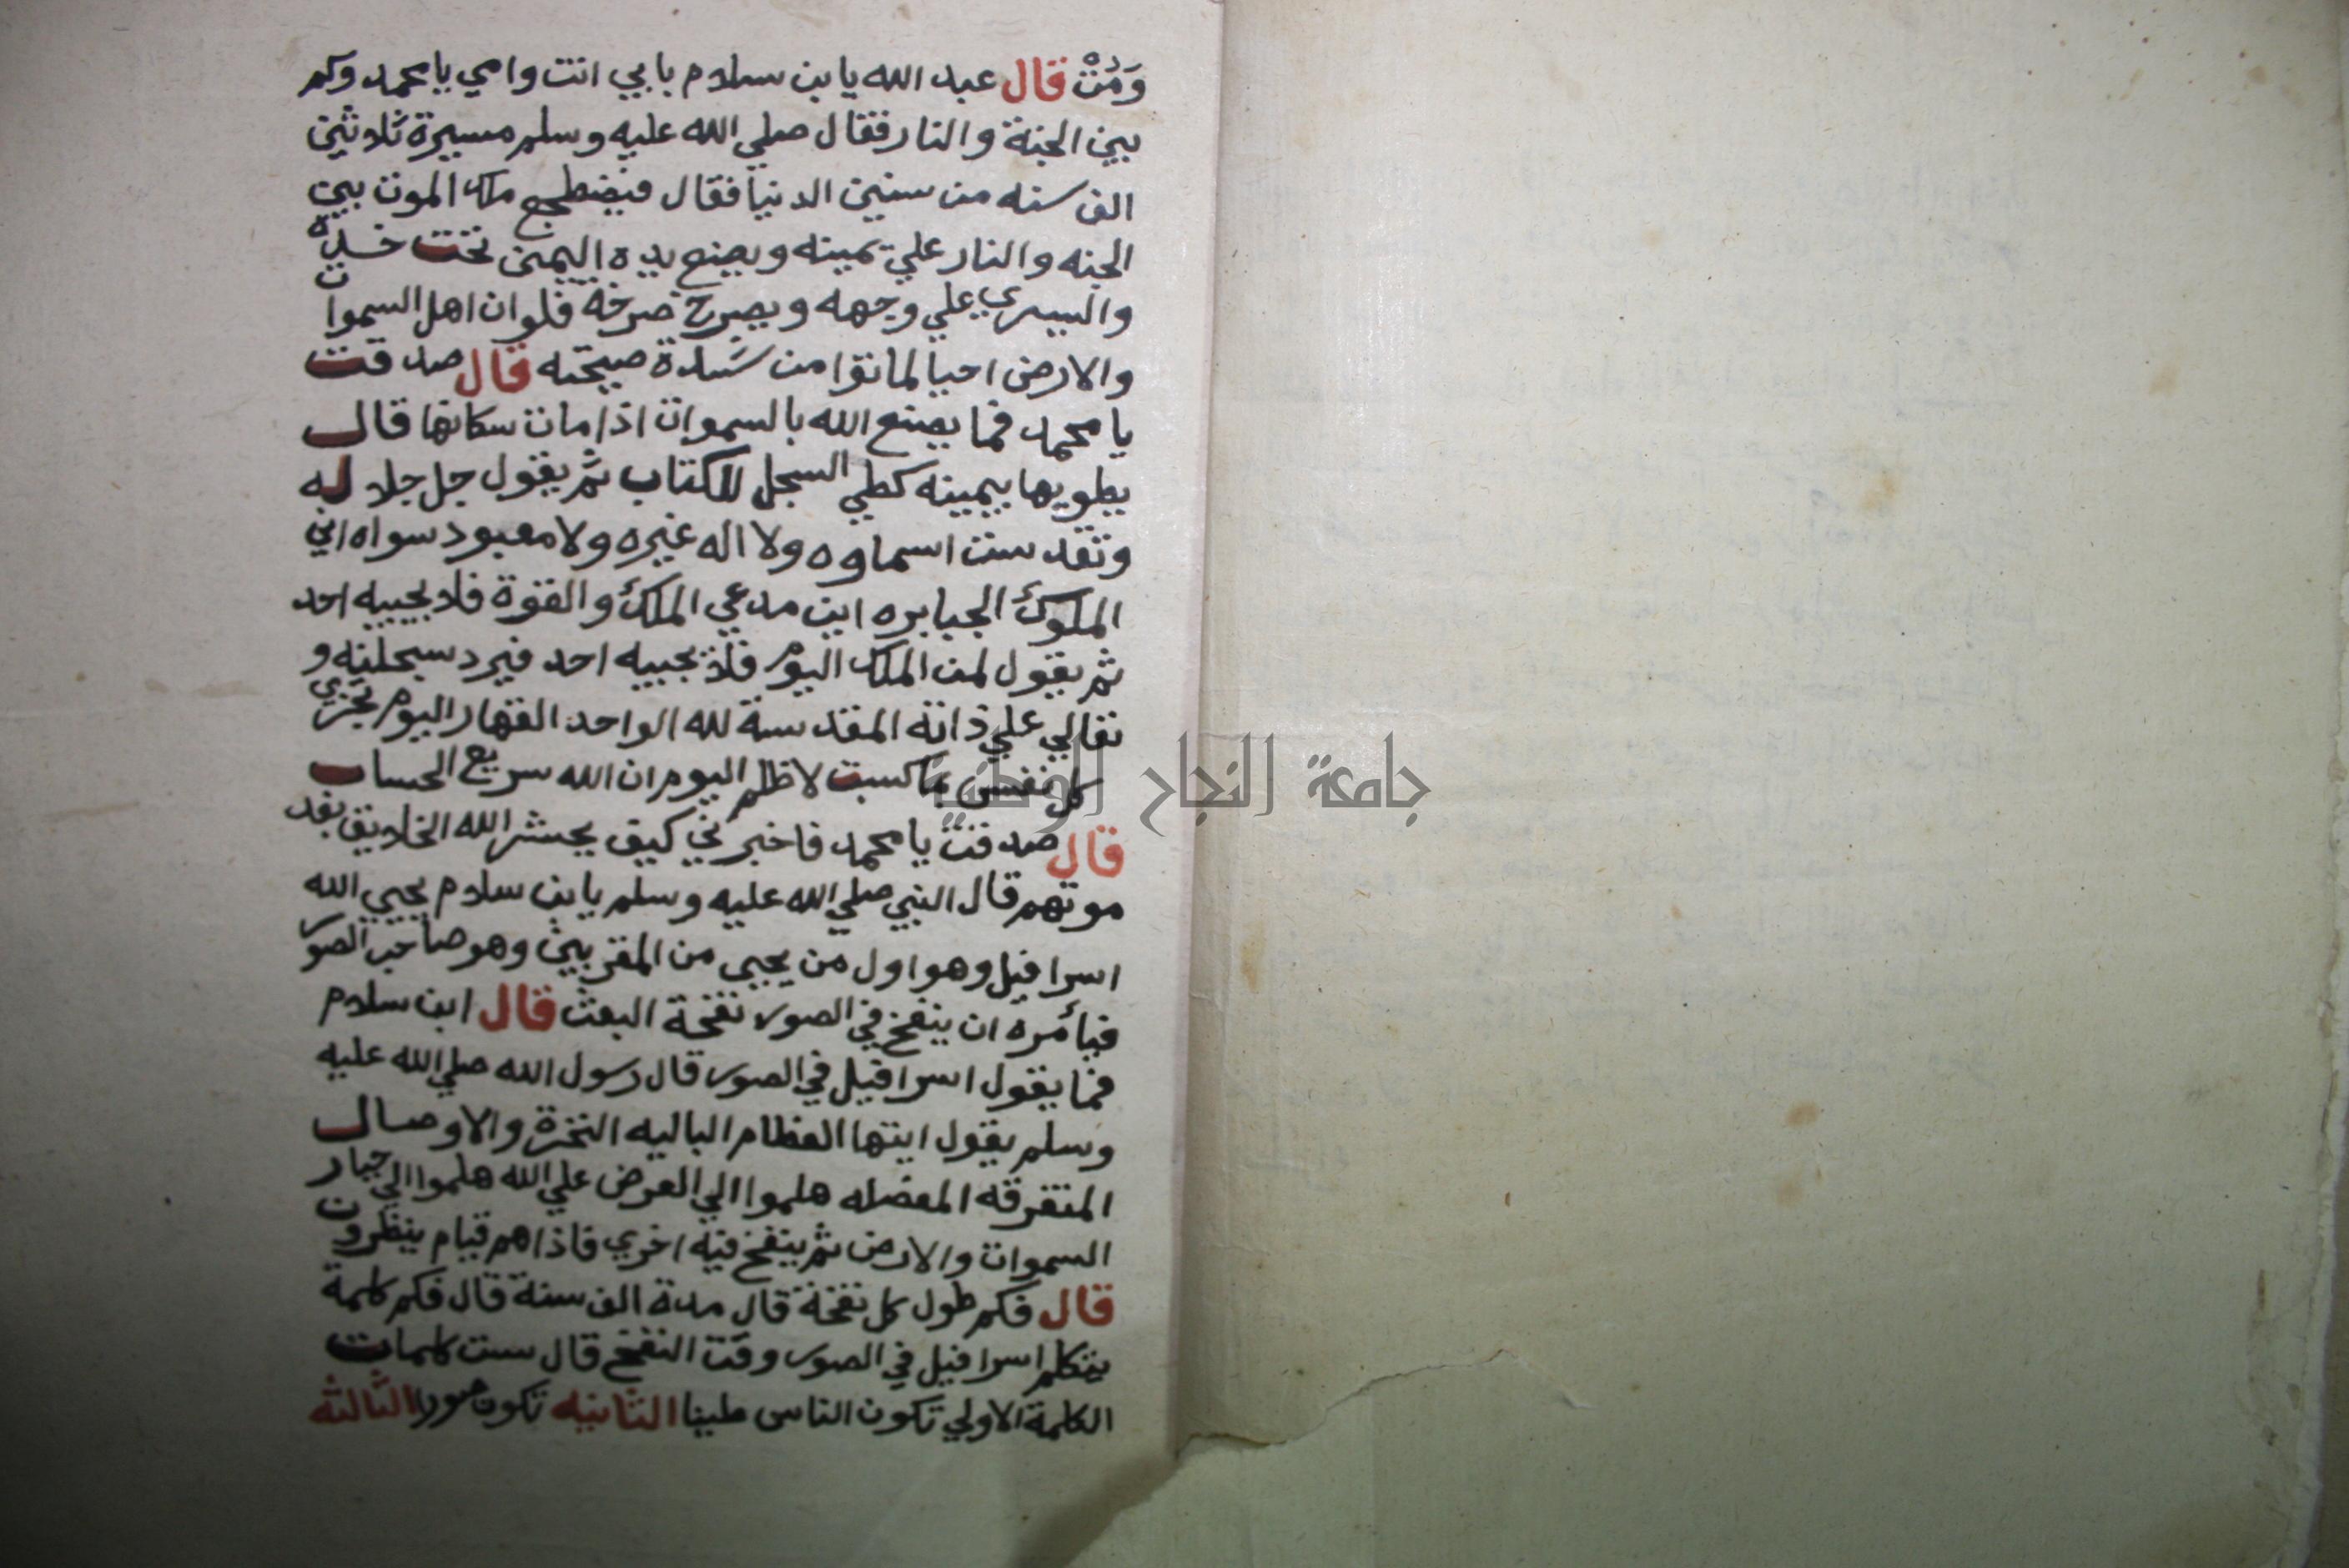 وَمُتْ قال عبد الله يا بن سلام بابي انت وامي يا محمد وكم
بين الجنة والنار فقال صلي الله عليه وسلم مسيرة ثلاثين
الف سنه من سنين الدنيا فقال فيضطجع ملك الموت بين
الجنه والنار علي يمينه ويضع يده اليمني تحت خده
واليسري علي وجهه ويصرخ صرخة فلو ان اهل السموات
والارض احيا لماتوا من شدة صيحته قال صدقت
يا محمد فما يصنع الله بالسموات اذا مات سكانها قال
يطويها بيمينه كطي السجل للكتاب ثم يقول جل جلاله
وتقدست اسماوه ولا اله غيره ولا معبود سواه اين
الملوك الجبابره اين مدعي الملك والقوة فلا يجيبه احد
ثم يقول لمن الملك اليوم فلا يجيبه احد فيرد سبحانه و
تعالي علي ذاته المقدسة لله الواحد القهار اليوم تجزي
كل نفس بما كسبت لا ظلم اليوم ان الله سريع الحساب
قال صدقت يا محمد فاخبرني كيف يحشر الله الخلايق بعد
موتهم قال النبي صلي الله عليه وسلم يا بن سلام يحيي الله
اسرافيل وهو اول من يحيى من المقربين وهو صاحب الصور
فيأمره ان ينفخ في الصور نفخة البعث قال ابن سلام
فما يقول اسرافيل في الصور قال رسول الله صلي الله عليه
وسلم يقول ايتها العظام الباليه النخرة والاوصال
المتفرقه المفصله هلموا الي العرض علي الله هلموا الي جبار
السموات والارض ثم ينفخ فيه اخري فاذا هم قيام ينظرون
قال فكم طول كل نفخة قال مدة الف سنة قال فكم كلمة
يتكلم اسرافيل في الصور وقت النفخ قال ست كلمات
الكلمة الاولي تكون الناس طينا الثانيه تكون صورا الثالثه
جامعة النجاح الوطنية